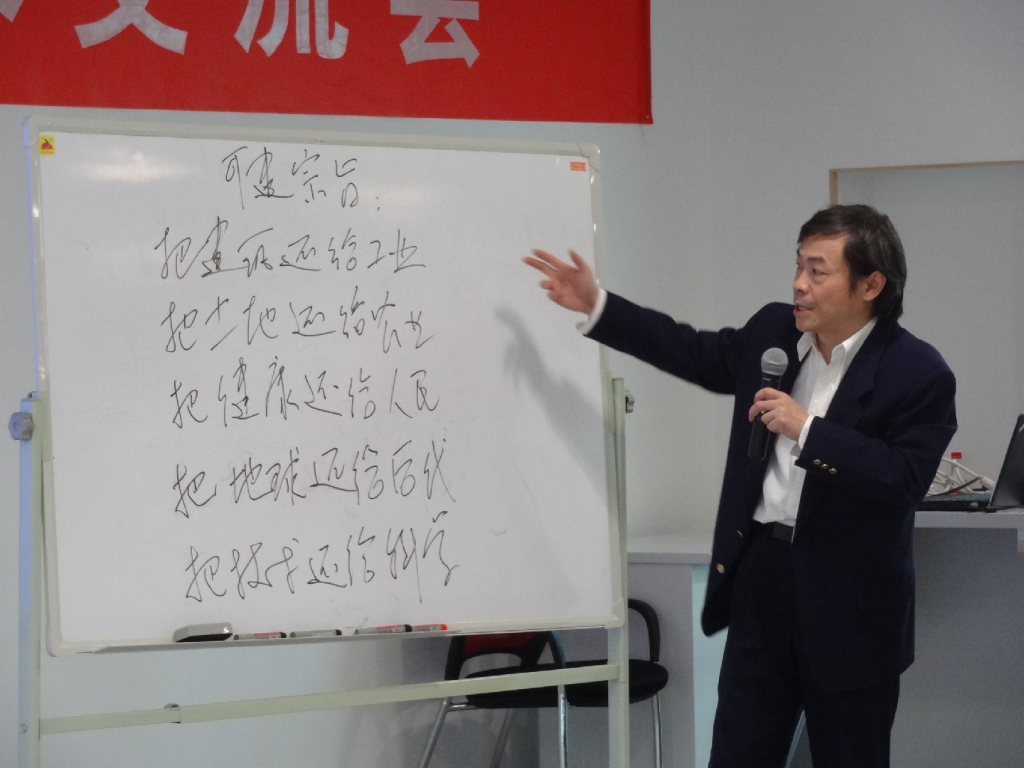 交流会
可建宗旨:
把建筑还给工业
把土地还给农业
把健康还给人民
把地球还给后代
把技术还给科学